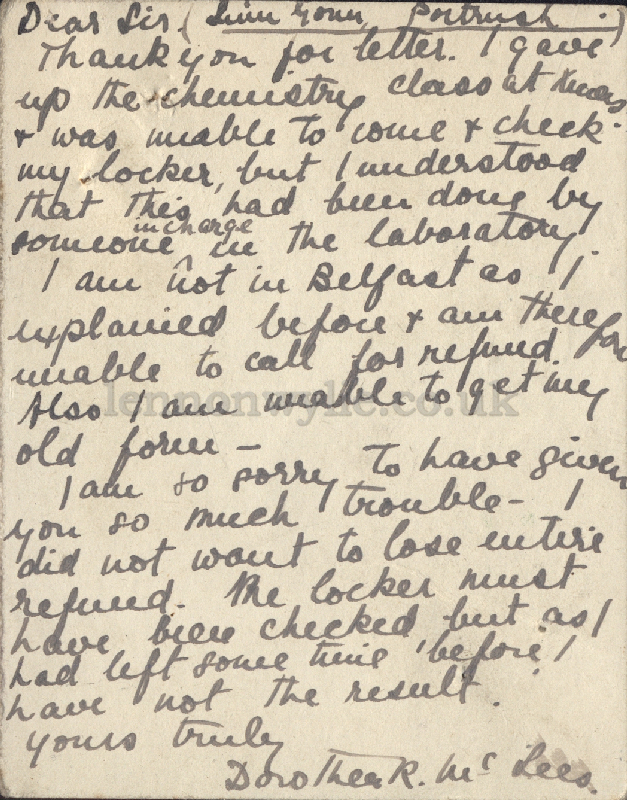 Dear Sir, ( Portrush. )
Thank you for letter. I gave
up the chemistry class at Xmas
& was unable to come & check
my locker, but I understood
that this had been done by
someone incharge in the laboratory.
I am not in Belfast as I
explained before & am therefore
unable to call for refund.
Also I am unable to get my
old form –
I am so sorry to have given
you so much trouble – I
did not want to lose entire
refund. The locker must
have been checked but as I
had left some time 'before' I
have not the result.
Yours truly
Dorothea R. Mc Lees.
lennonwylie.co.uk